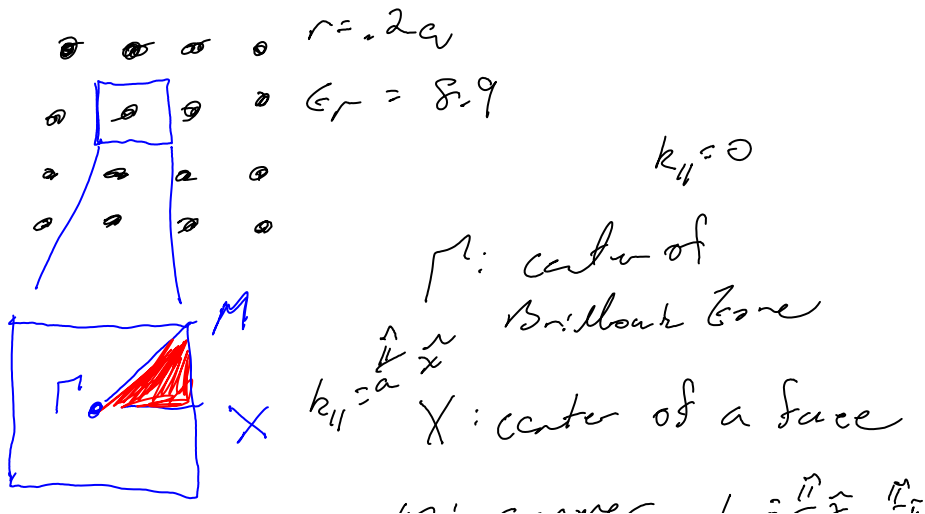 r = .2a
ϵr = 8.9
k∥ = 0
Γ: center of
Brillouin Zone
M
Γ
X
k∥ = π/a x̂
X: center of a face
M: corner k∥ = π/a x̂